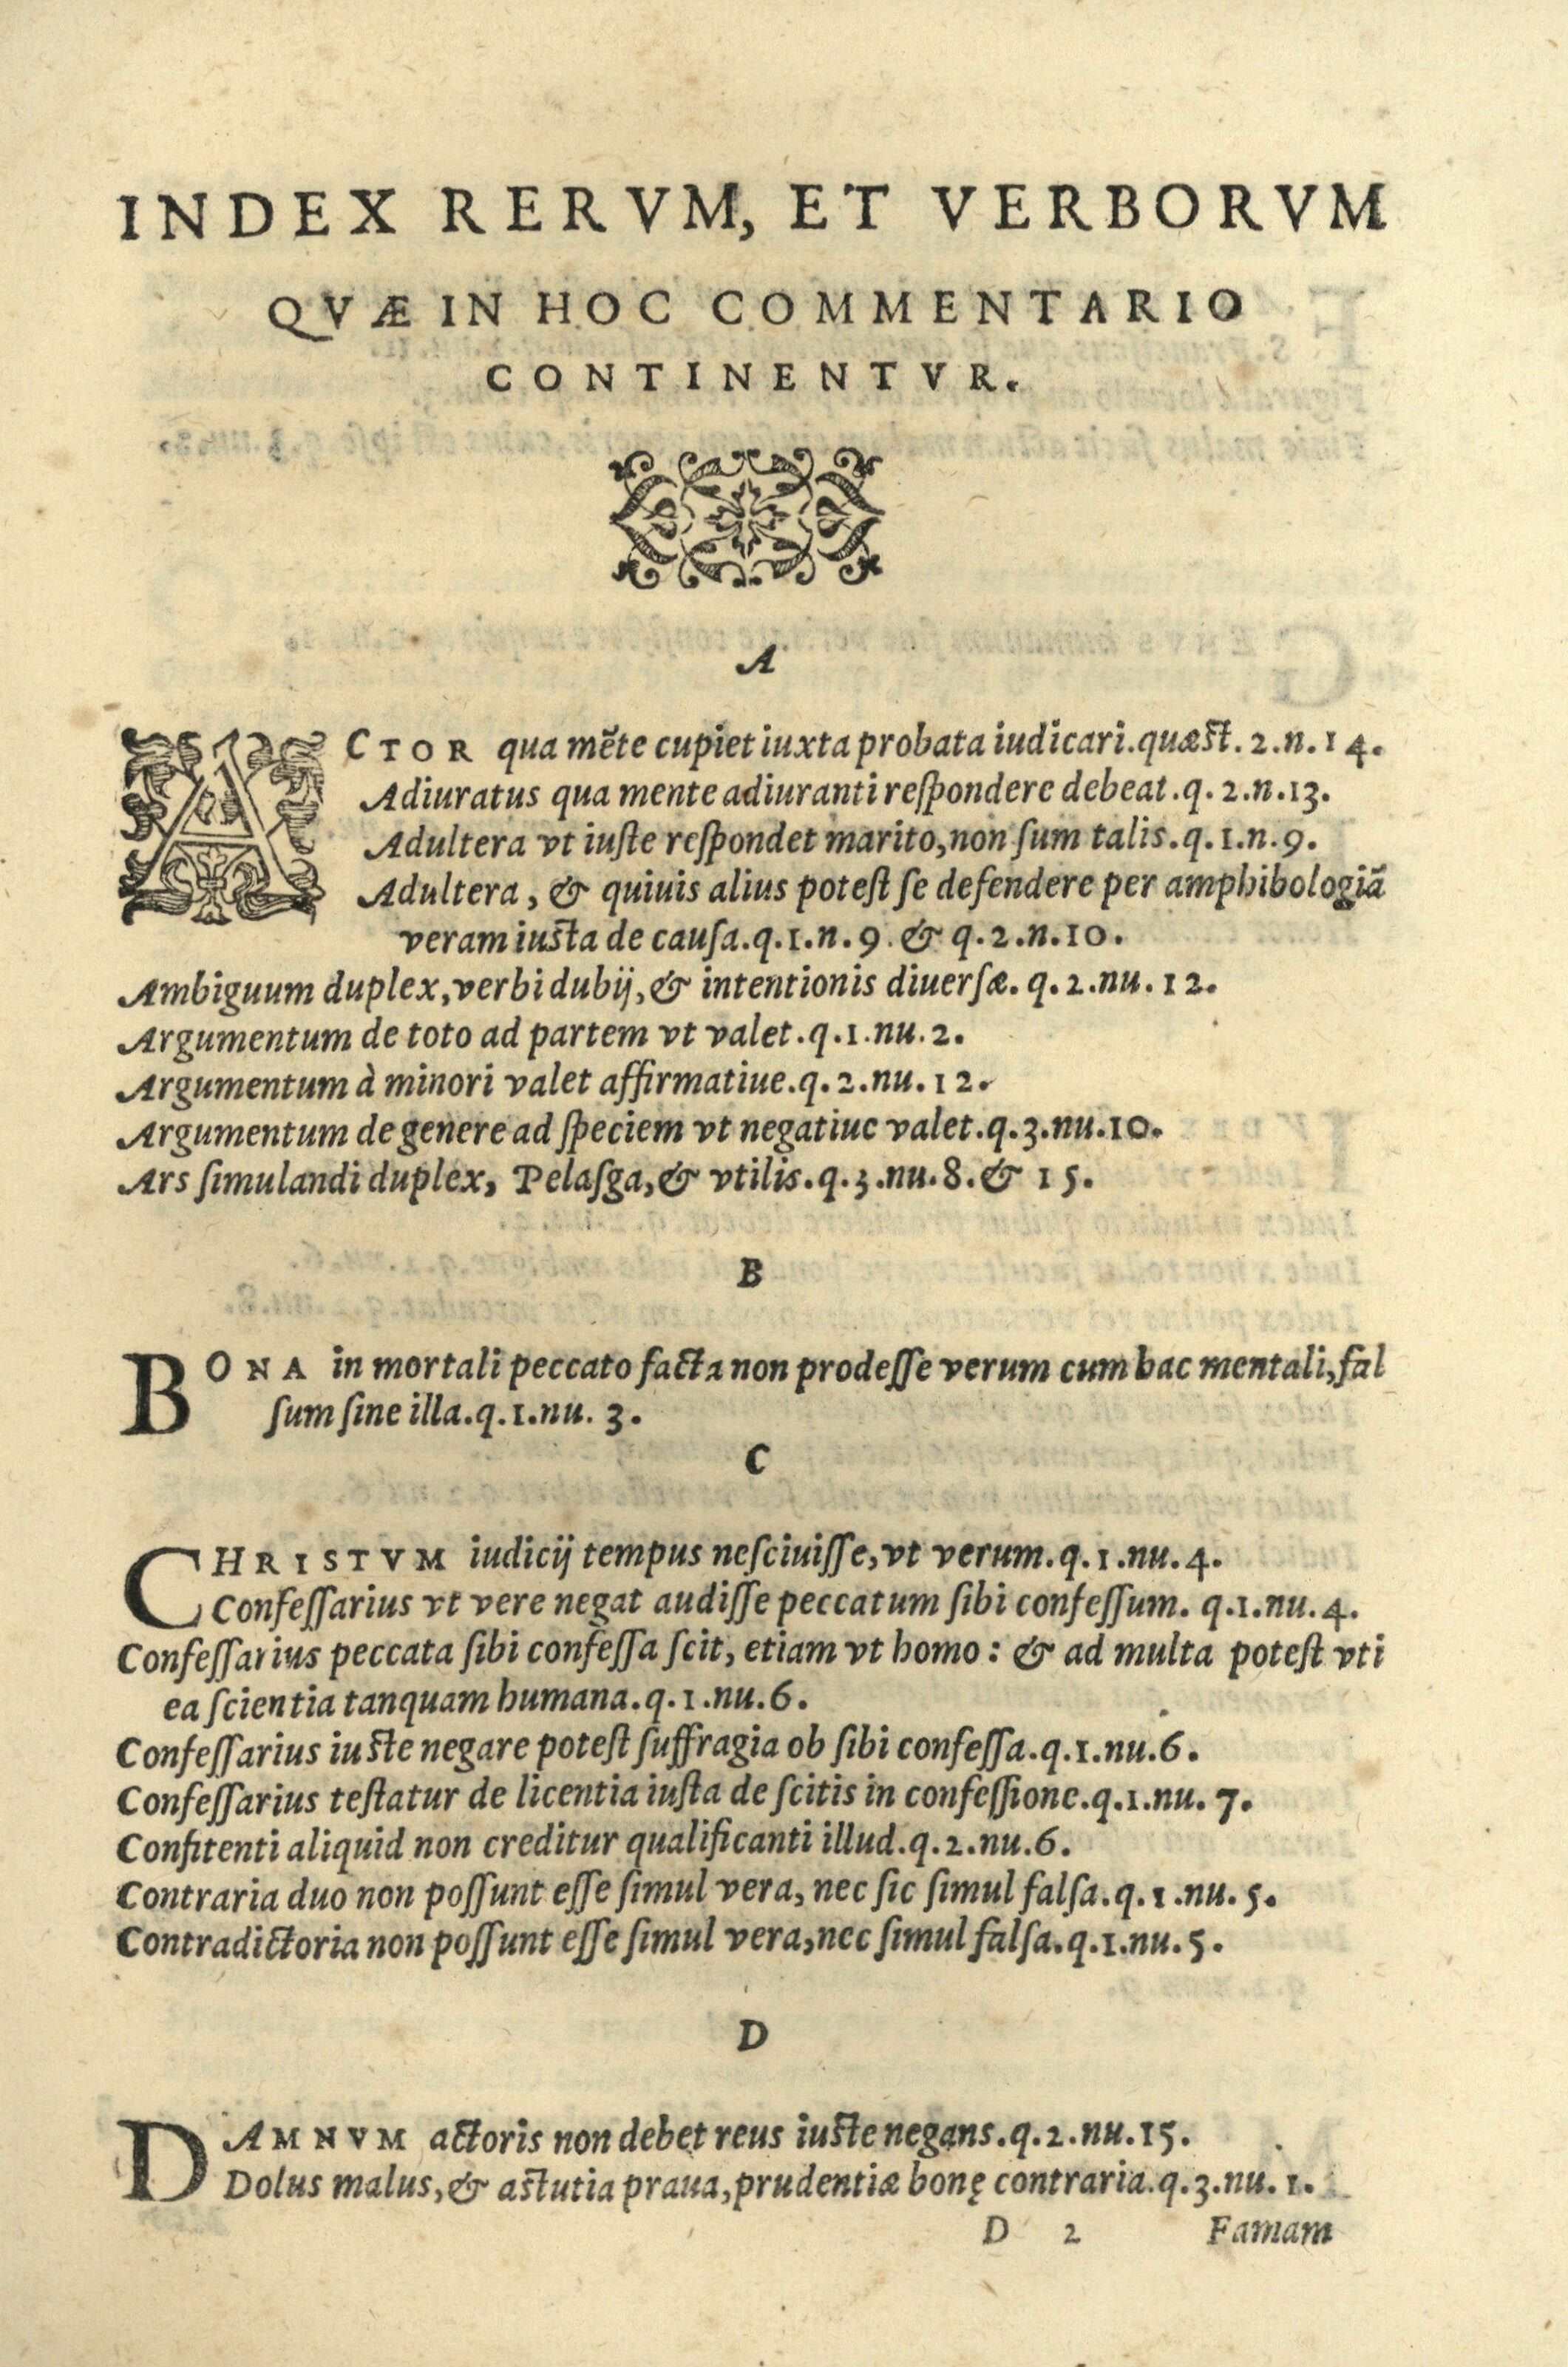 INDEX RERVM, ET VERBORVM
QVÆ IN HOC COMMENTARIO
CONTINENTVR.
A
ACTOR qua mẽte cupiet iuxta probata iudicari.quæst.2.n.14.
Adiuratus qua mente adiuranti reſpondere debeat.q.2.n.13.
Adultera vt iuſte reſpondet marito,non ſum talis.q.1.n.9.
Adultera, & quiuis alius poteſt ſe defendere per amphibologiã
veram iusta de cauſa.q.1.n.9.& q.2.n.10.
Ambiguum duplex,verbi dubij,& intentionis diuerſæ.q.2.nu.12.
Argumentum de toto ad partem vt valet.q.1.nu.2.
Argumentum à minori valet affirmatiue.q.2.nu.12.
Argumentum de genere ad ſpeciem vt negatiuc valet.q.3.nu.10.
Ars ſimulandi duplex, Pelaſga,& vtilis.q.3.nu.8.& 15.
B
BONA in mortali peccato facta non prodeſſe verum cum hac mentali,fal
ſum ſine illa.q.1.nu.3.
C
CHRISTVM iudicij tempus neſciuiſſe,vt verum.q.1.nu.4.
Confeſſarius vt vere negat audiſſe peccatum ſibi confeſſum. q.1.nu.4.
Confeſſarius peccata ſibi confeſſa ſcit, etiam vt homo: & ad multa poteſt vti
ea ſcientia tanquam humana.q.1.nu.6.
Confeſſarius iuste negare poteſt ſuffragia ob ſibi confeſſa.q.1.nu.6.
Confeſſarius teſtatur de licentia iuſta de ſcitis in confeſſione.q.1.nu.7.
Confitenti aliquid non creditur qualificanti illud.q.2.nu.6.
Contraria duo non poſſunt eſſe ſimul vera, nec ſic ſimul falſa.q.1.nu.5.
Contradictoria non poſſunt eſſe ſimul vera,nec ſimul falſa.q.1.nu.5.
D
DAMNVM actoris non debet reus iuste negans.q.2.nu.15.
Dolus malus,& astutia praua,prudentiæ bonę contraria.q.3.nu.1.
D 2 Famam